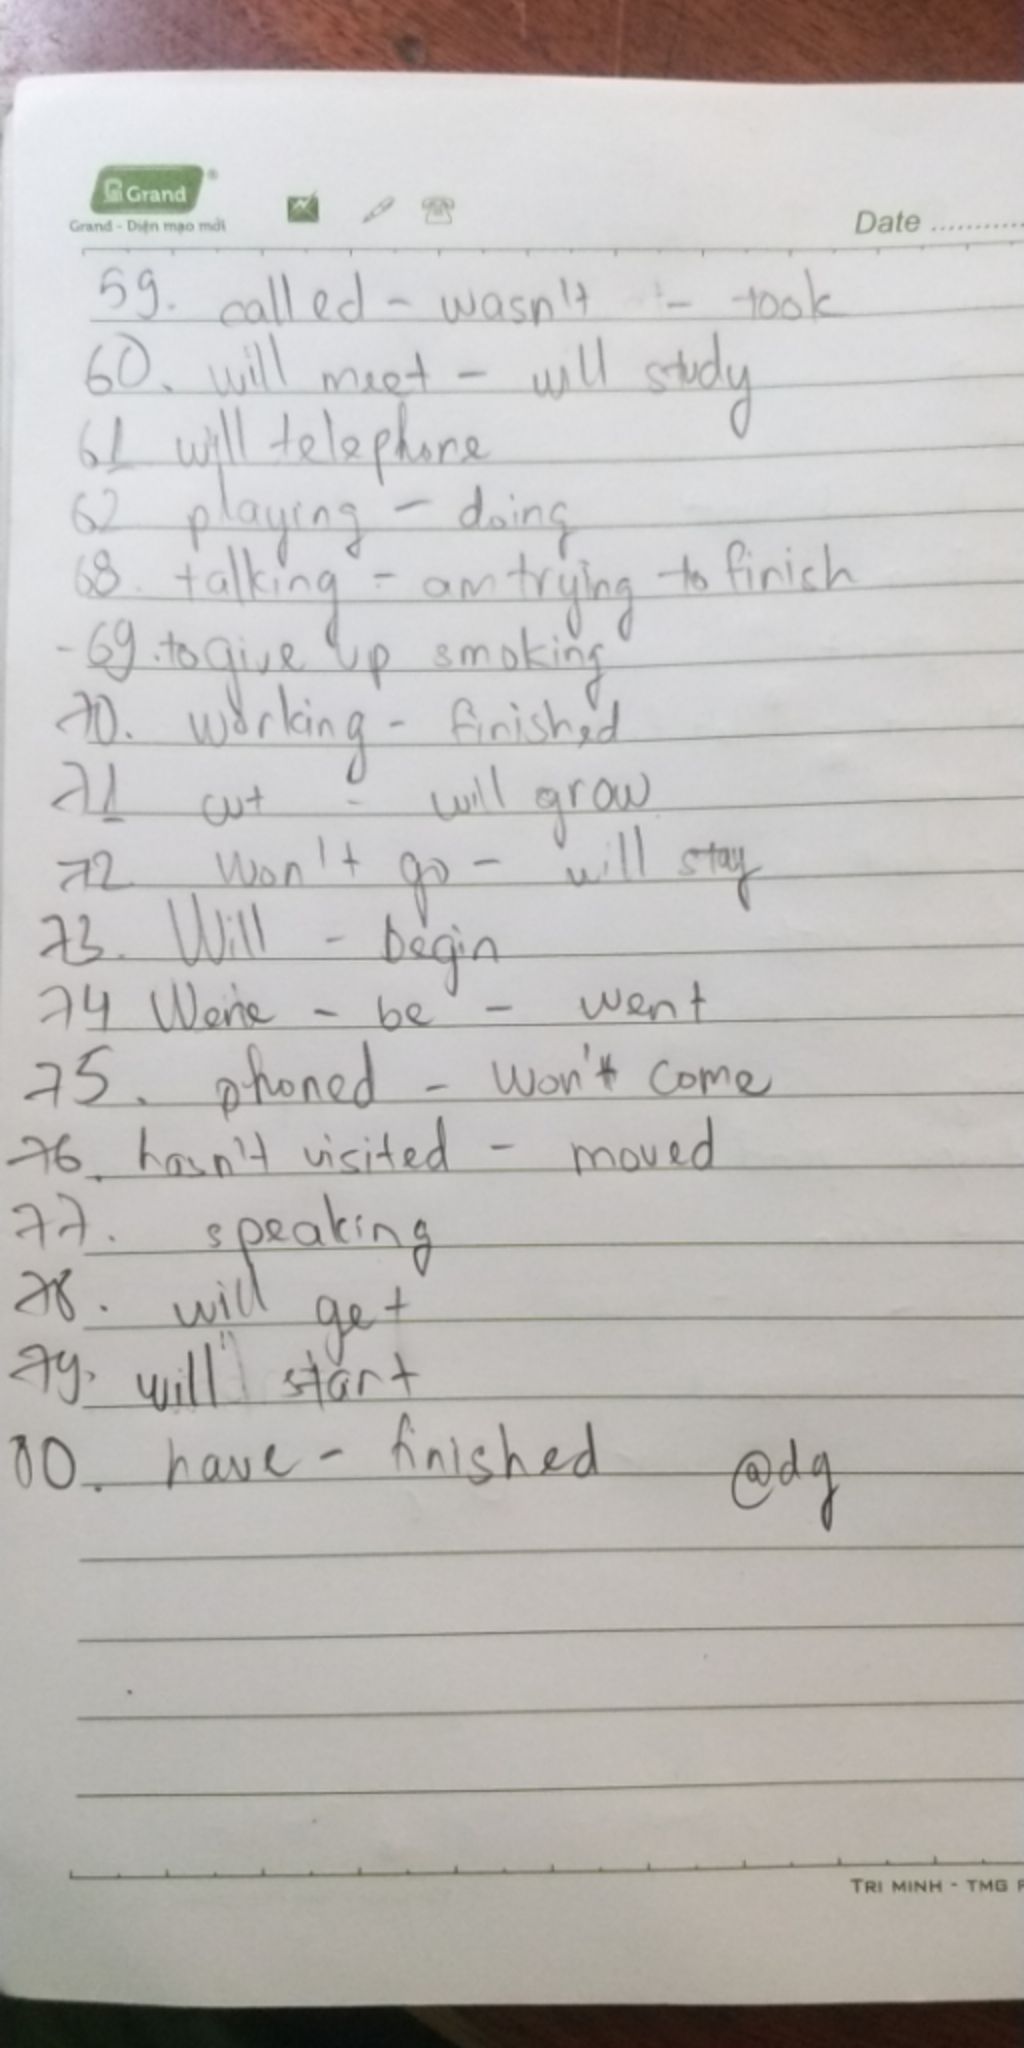 Grand
Grand - Diện mạo mới
Date ..........
59. called - wasn't - took
60. will meet - will study
61 will telephone
62 playing - doing
68. talking - am trying to finich
- 69. to give up smoking
70. working - finished
71 cut - will grow
72 Won't go - will stay
73. Will - begin
74 Were - be - went
75. phoned - won't come
76. hasn't visited - moved
77. speaking
78. will get
79. will start
80. have - finished @dg
TRI MINH - TMG